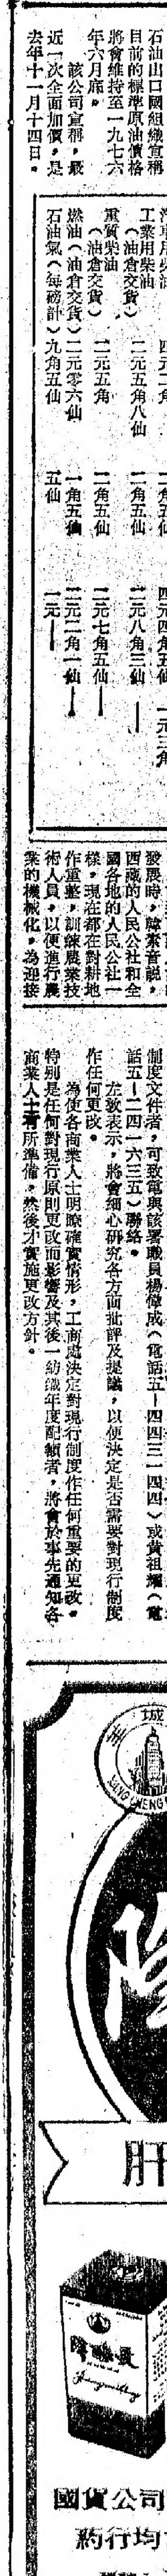 石油出口國組織宣稱
目前的標準原油價格
將會維持至一九七六
年六月底。
該公司宣稱，最
近一次全面加價，是
去年十一月十四日。
工業用柴油
（油倉交貨）二元五角八仙 二角五仙 二元八角三仙
重質柴油
（油倉交貨）二元五角 二角五仙 二元七角五仙
燃油（油倉交貨）二元零六仙 一角五仙 二元二角一仙
石油氣（每磅計）九角五仙 五仙 一元
發展時，韓素音說，
西藏的人民公社和全
國各地的人民公社一
樣，現在都在對耕地
作重整，訓練農業技
術人員，以便進行農
業的機械化，為迎接
制度文件者，可致電與該署職員楊偉成（電話五－四四三一四四）或黃祖耀（電
話五－二四一六三五）聯絡。
左敦表示，將會細心研究各方面批評及提議，以便決定是否需要對現行制度
作任何更改。
為使各商業人士明瞭確實情形，工商處決定對現行制度作任何重要的更改。
特別是任何對現行原則更改而影響及其後一紡織年度配額者，將會於事先通知各
商業人士有所準備，然後才實施更改方針。
城
肝
國貨公司
約行均